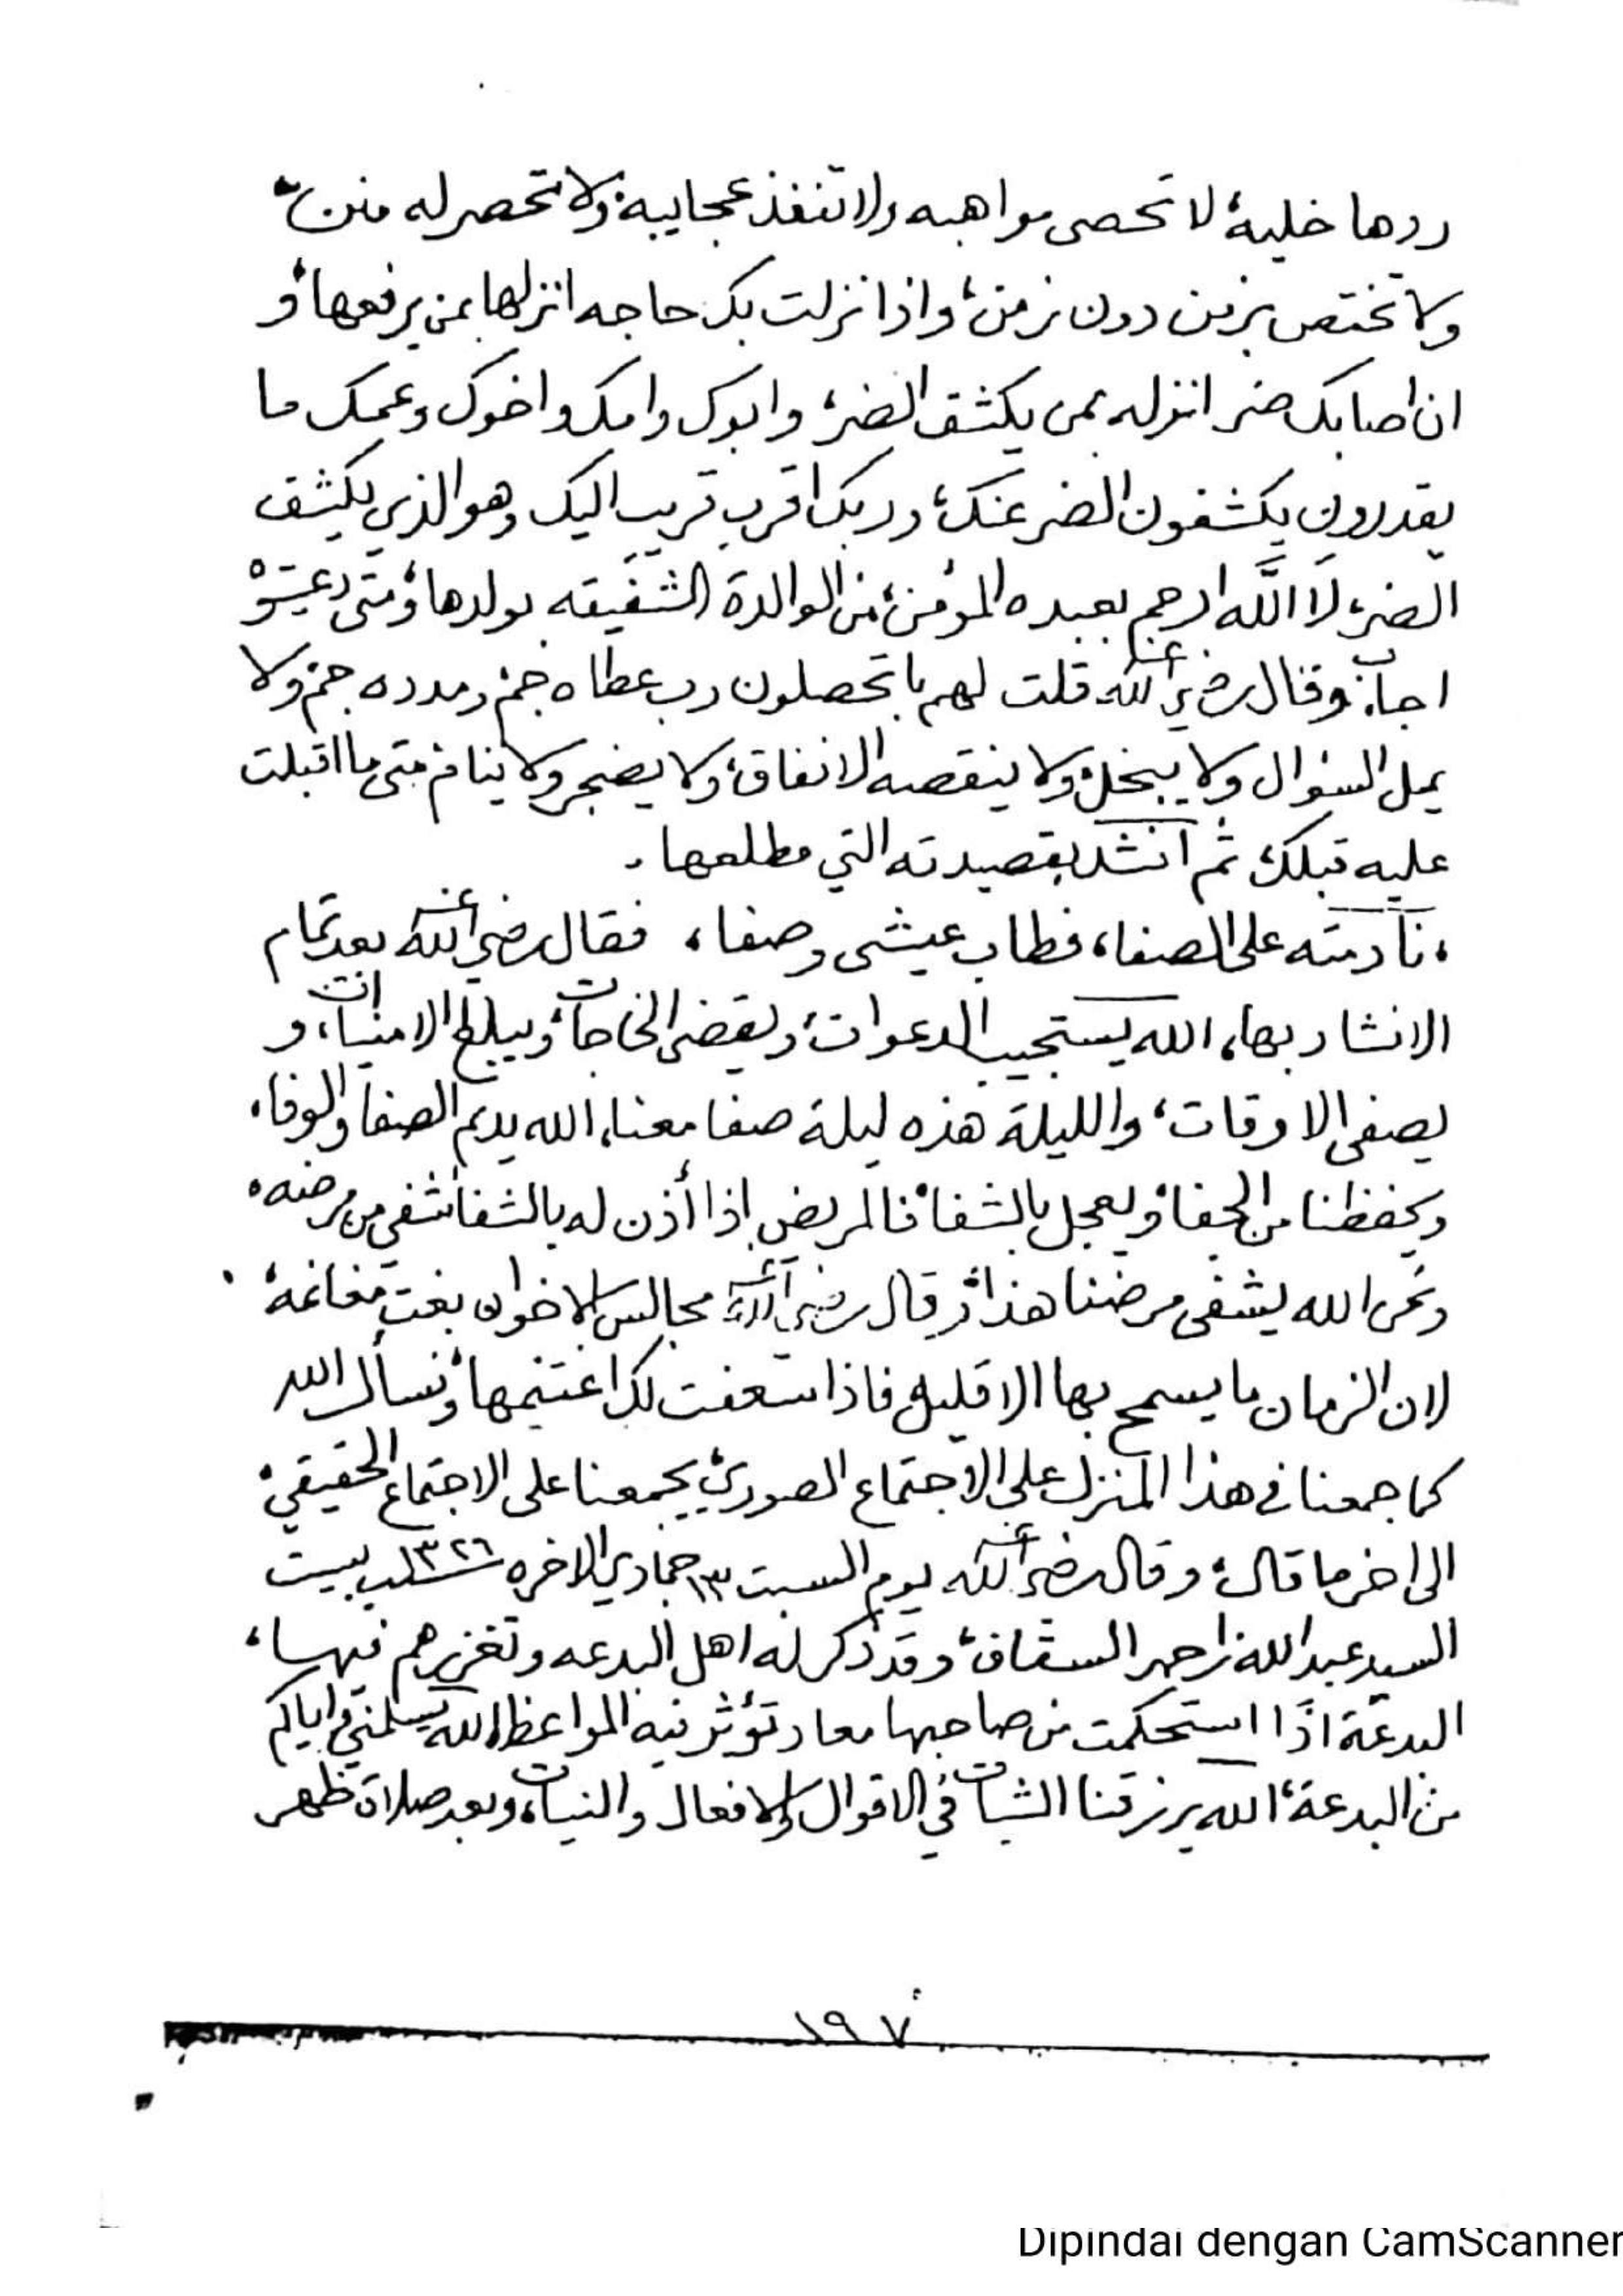 ردها خلية، لا تحصى مواهبه ولا تنفذ عجايبه، ولا تحصر له منن،
ولا تختص بزمن دون زمن، واذا نزلت بك حاجه انزلها بمن يرفعها، و
ان اصابك ضر انزله بمن يكشف الضر، وابوك وامك واخوك وعمك ما
يقدرون يكشفون الضر عنك، وربك اقرب قريب اليك وهو الذي يكشف
الضر، لا الله ارحم بعبده المؤمن، من الوالدة الشفيقه بولدها، ومتى دعيتوْه
اجاب، وقال رضي الله عنه قلت لهم با تحصلون رب عطاه جم، ومدده جم، ولا
يمل السؤال ولا يبخل، ولا ينقصه الانفاق، ولا يضجر ولا ينام، متى ما اقبلت
عليه قبلك، ثم انشد بقصيدته التي مطلعها .
، نادمته على الصفا، فطاب عيشى وصفا، فقال رضي الله عنه بعد تمام
الانشاد بها، الله يستجيب الدعوات، ويقضي الحاجات، ويبلغ الامنيات، و
يصفى الاوقات، والليلة هذه ليلة صفا معنا، الله يديم الصفا والوفا،
ويحفظنا من الجفا، ويعجل بالشفا، فالمريض اذا أذن له بالشفا شفى من مرضه،
ونحن الله يشفى مرضنا هذا، وقال رضي الله عنه مجالس الاخوان بغت مغانمة،
لان الزمان ما يسمح بها الا قليل، فاذا سعفت لك اغتنمها، ونسأل الله
كما جمعنا في هذا المنزل على الاجتماع الصوري، يجمعنا على الاجتماع الحقيقي،
الى اخر ما قال، وقال رضي الله عنه يوم السبت ١٣ جمادي الاخره ١٣٢٦ ببيت
السيد عبد الله بن احمد السقاف، وقد ذكر له اهل البدعه وتغزرهم فيها،
البدعة اذا استحكمت من صاحبها معاد تؤثر فيه المواعظ، الله يسلمني واياكم
من البدعة، الله يرزقنا الثبات في الاقوال والافعال والنيات، وبعد صلاة ظهر
١٩٧
Dipindai dengan CamScanner